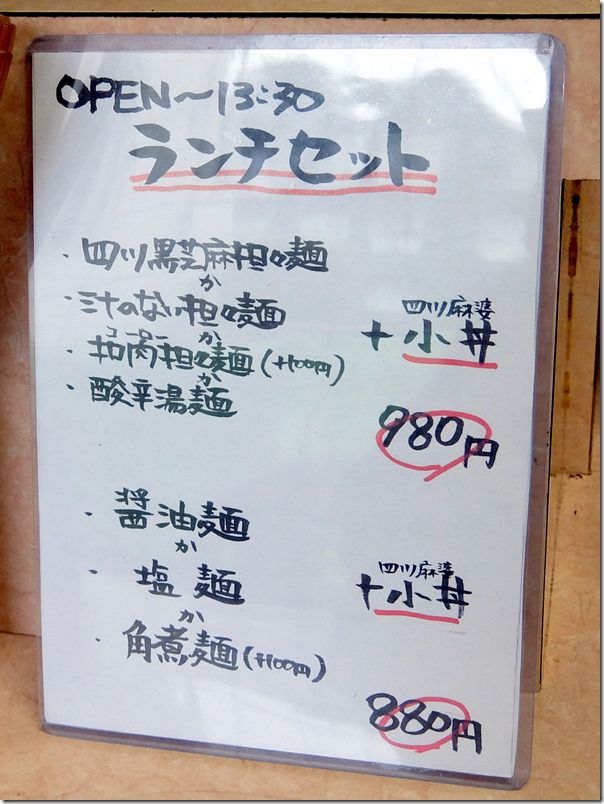 OPEN～13:30
ランチセット
・四川黒芝麻担々麺
か
・汁のない担々麺
か
コーロー
・扣肉担々麺(+100円)
か
・酸辛湯麺
四川麻婆
+小丼
980円
・醤油麺
か
・塩麺
か
・角煮麺(+100円)
四川麻婆
+小丼
880円